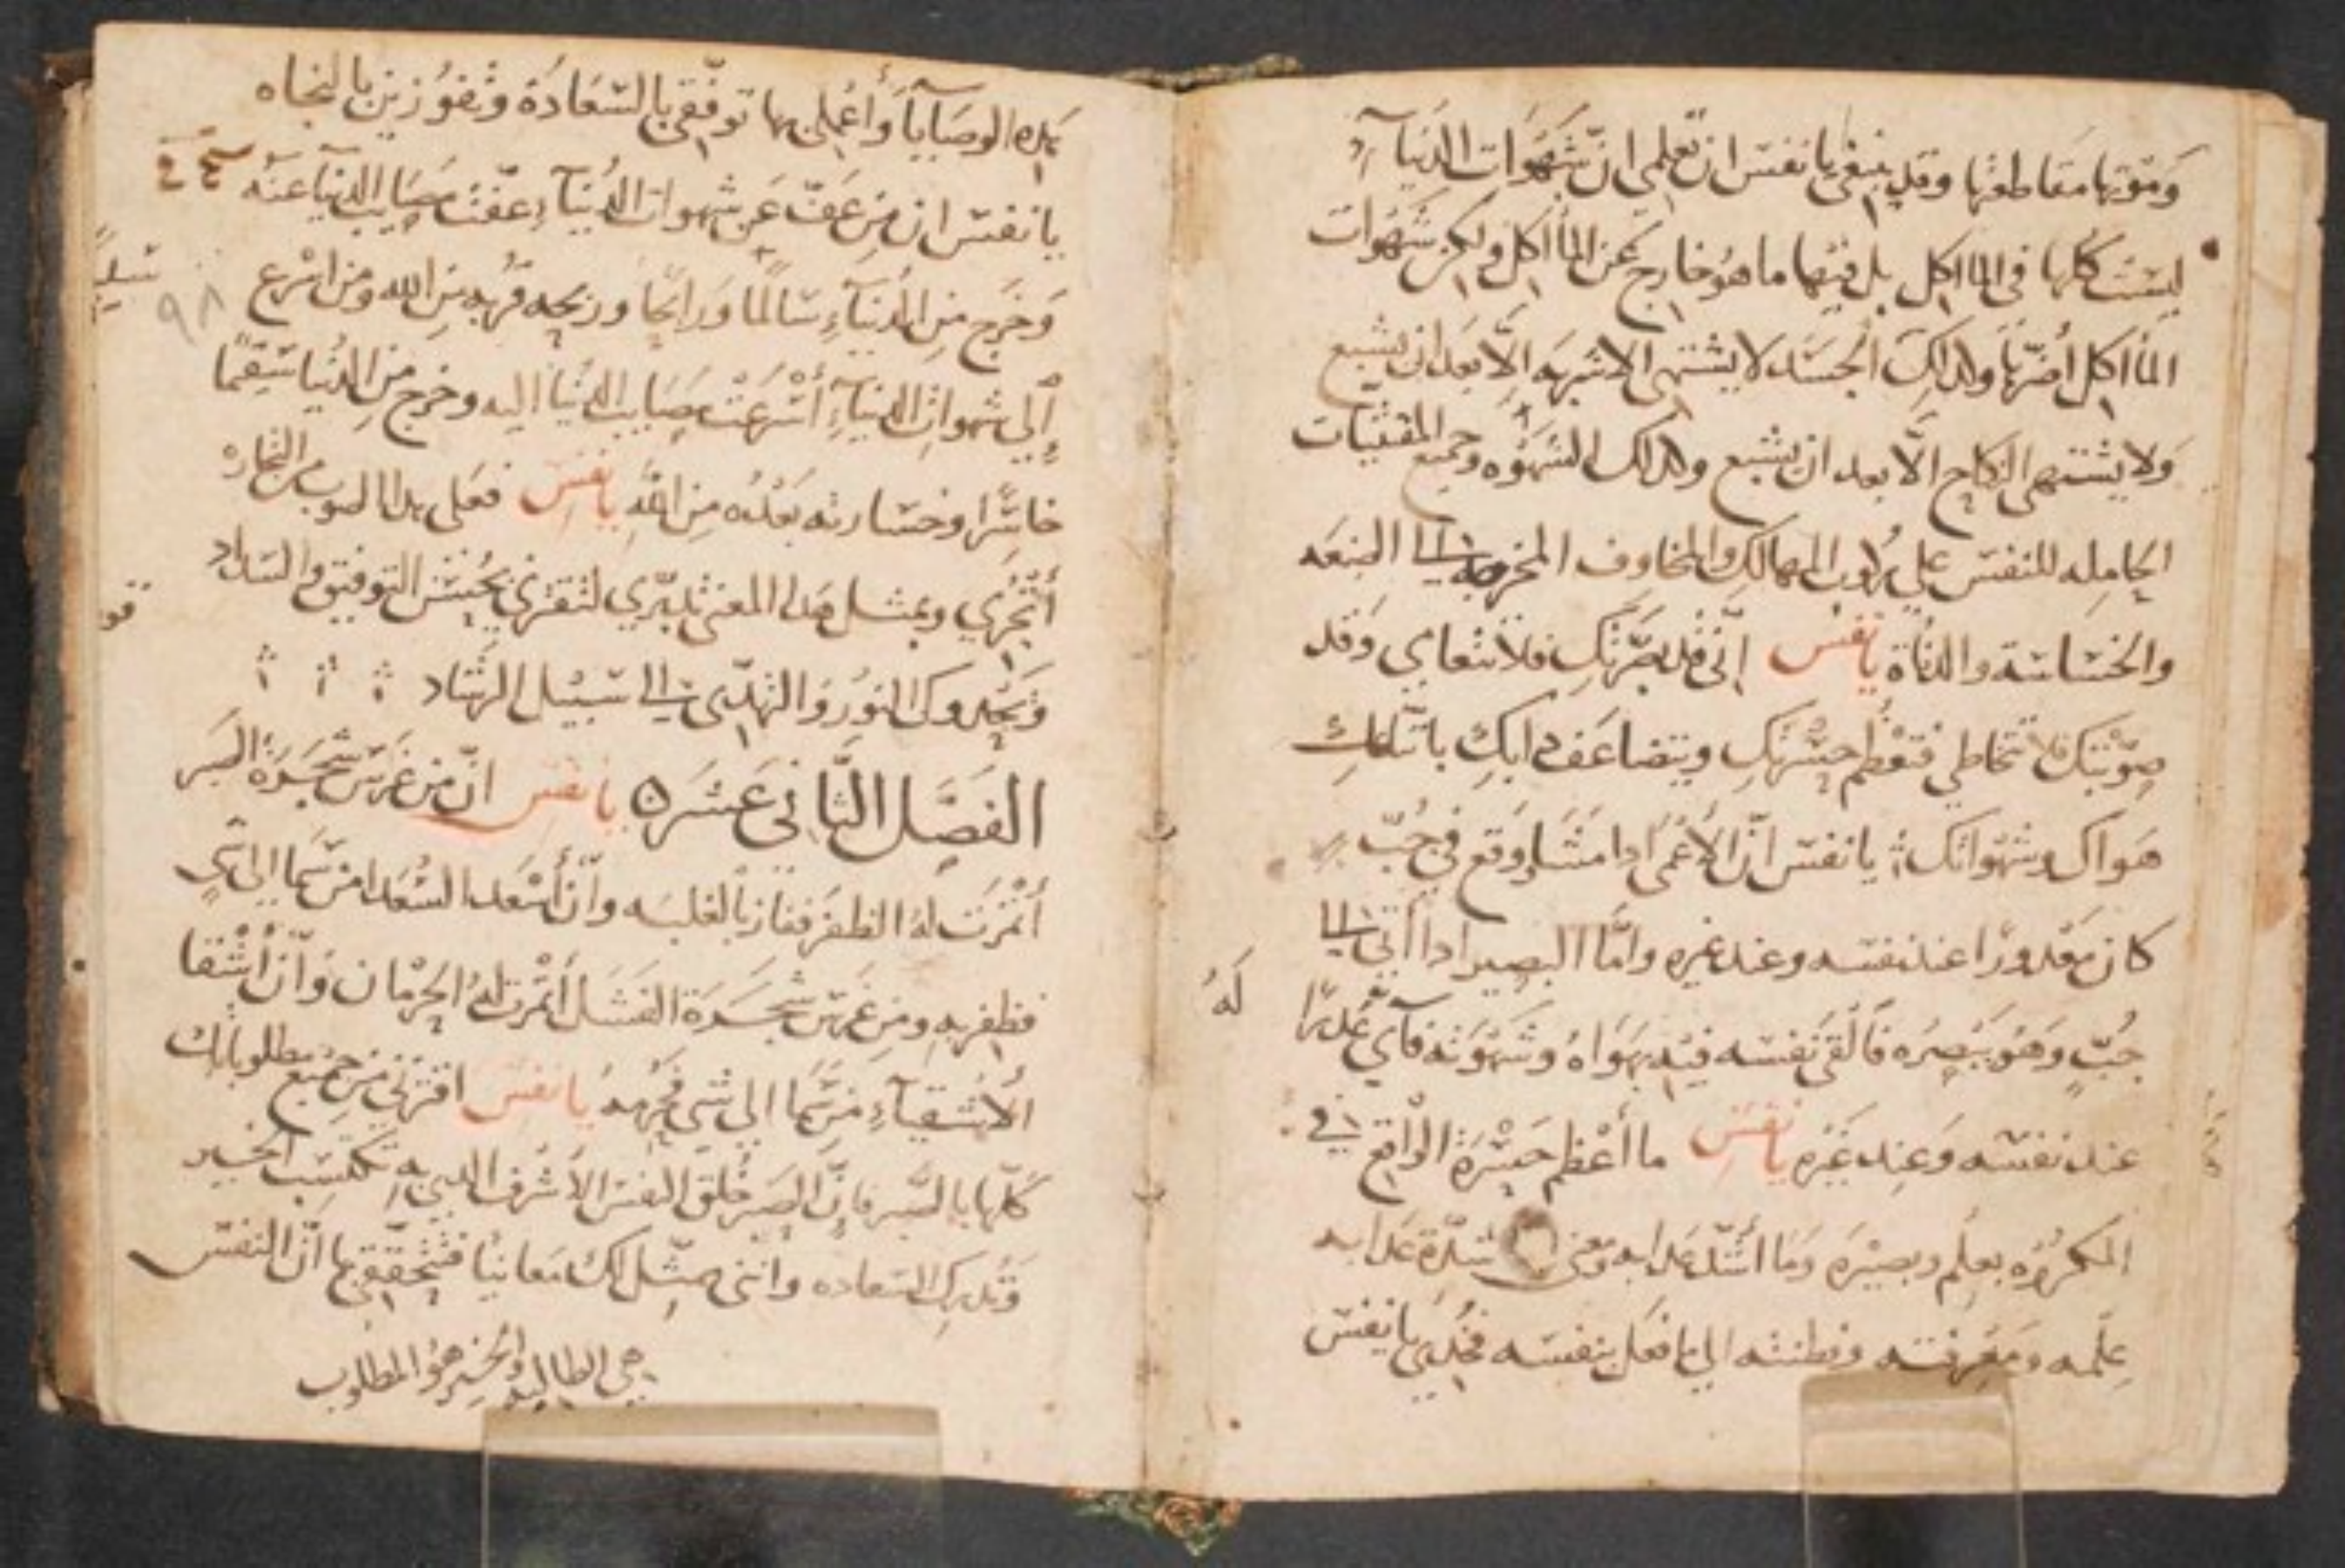 ومقتها مقاطعتها وقد ينبغي يا نفس ان تعلمي ان شهوات الدنيا
ليست كلها في الماآكل بل فيها ما هو خارج عن المأاكل ولكن شهوات
المأاكل أضرها ولذلك الجسد لا يشتهي الاشربه إلا بعد ان يشبع
ولا يشتهي النكاح الا بعد ان يشبع ولذلك الشهوه وجميع المقتنيات
الحامله للنفس على ركوب المهالك والمخاوف المخرجه الى الضعه
والخساسة والدناة يا نفس إني قد بصرتك فلا تتعامي وقد
صوبتك فلا تخاطي فتعظم حسرتك ويتضاعف عدابك باتباعك
هواك وشهواتك يا نفس ان الأعمى ادا مشا ووقع في جب
كان معدورا عند نفسه وعند غيره وأما البصير ادا أتى الى
جب وهو يبصره فألقى نفسه فيه بهواه وشهوته فأي عدرا له
عند نفسه وعند غيره يا نفس ما أعظم حسرة الواقع في
المكروه بعلم وبصيرة وما أشد عدابه ومعنى شدة عدابه
علمه ومعرفته وفطنته الى ما فعل بنفسه فخدي يا نفس
بهده الوصايا وأعملي بها توفقي بالسعادة وتفوزين بالنجاه
يا نفس ان من عف عن شهوات الدنيا عفت مصايب الدنيا عنه
وخرج من الدنيا سالما ورابحا وربحه قربه من الله ومن اسرع
٩٨
إلى شهوات الدنيا أسرعت مصايب الدنيا اليه وخرج من الدنيا سقيما
خاسرا وخسارته بعده من الله يا نفس فعلى هدا الصوب من التجاره
أتجري وبمثل هدا المعنى تدبري لتقترني بحسن التوفيق والسداد
وتجدوك النور والتهدي الى سبيل الرشاد
الفصل الثاني عشر يا نفس ان من غرس شجرة الصبر
أثمرت له الظفر ففاز بالغلبه وان أسعد السعدا من سما الى شي
فظفر به ومن غرس شجرة الفشل أثمرت له الحرمان وان أشقا
الأشقيآء من سما الى شي فحرمه يا نفس اقترني من جميع مطلوباتك
كلها بالصبر فان الصبر خلق النفس الأشرف الدي به تكتسب الخير
وتدرك السعاده وانني ممثل لك معانيا فتحققي بها ان النفس
هي الطالبه والخير هو المطلوب